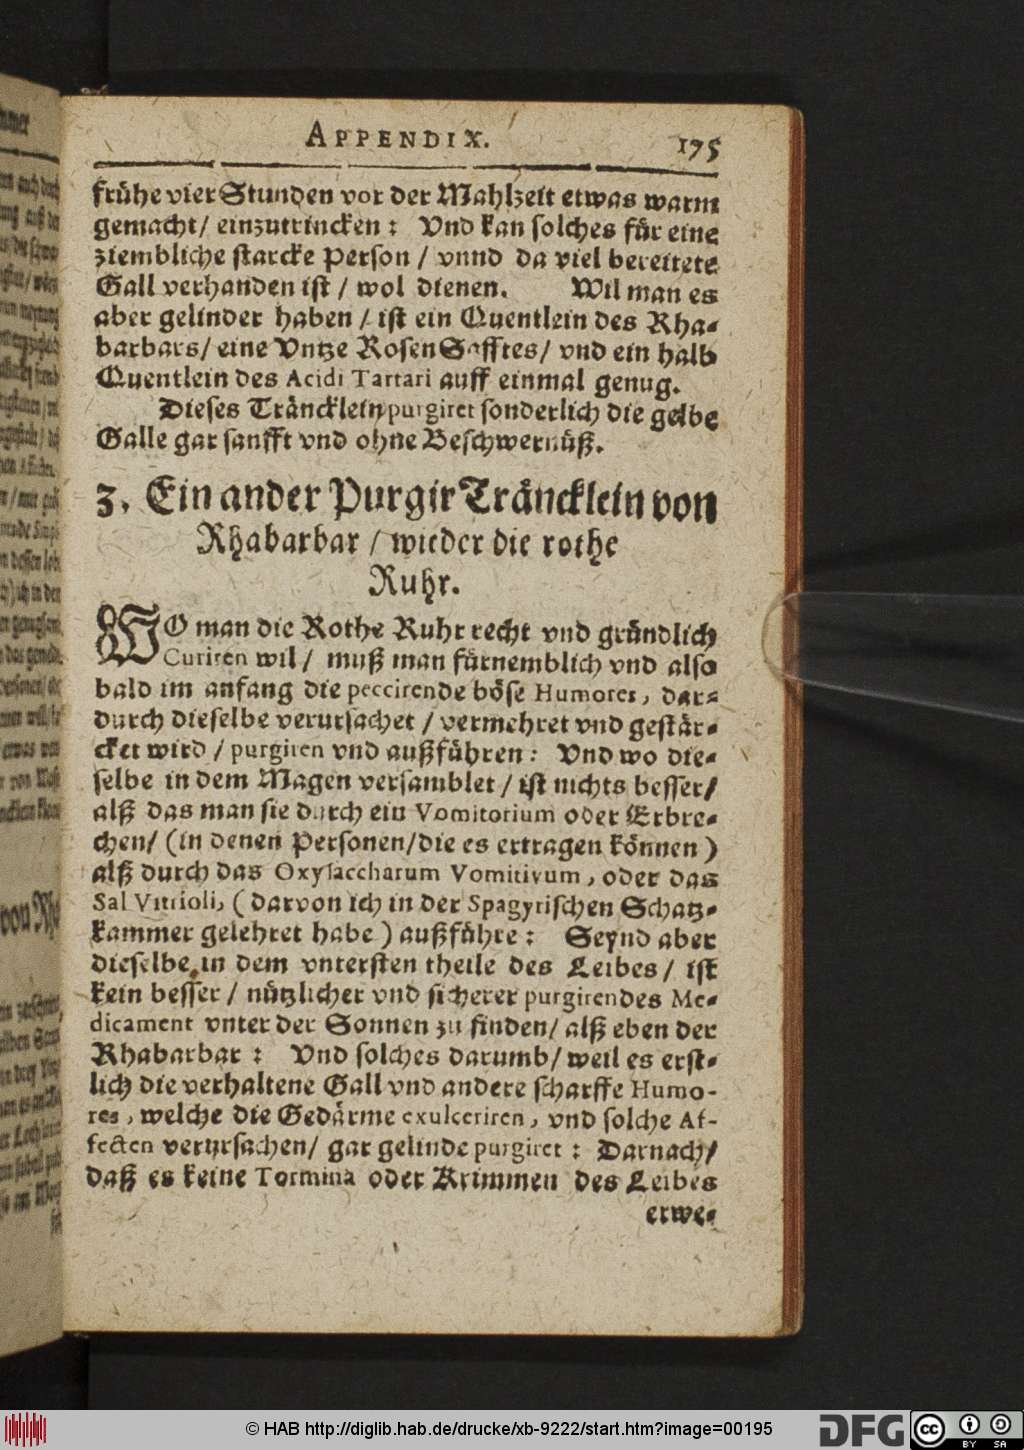 APPENDIX. 175
frühe vier Stunden vor der Mahlzeit etwas warm
gemacht/ einzutrincken: Vnd kan solches für eine
ziembliche starcke Person / vnnd da viel bereitete
Gall verhanden ist / wol dienen. Wil man es
aber gelinder haben / ist ein Quentlein des Rha-
barbars/ eine Vntze Rosen Safftes/ vnd ein halb
Quentlein des Acidi Tartari auff einmal genug.
Dieses Träncklein purgiret sonderlich die gelbe
Galle gar sanfft vnd ohne Beschwernüß.
3. Ein ander Purgir Träncklein von
Rhabarbar / wieder die rothe
Ruhr.
WO man die Rothe Ruhr recht vnd gründlich
Curiren wil / muß man fürnemblich vnd also
bald im anfang die peccirende böse Humores, dar-
durch dieselbe verursachet / vermehret vnd gestär-
cket wird / purgiren vnd außführen: Vnd wo die-
selbe in dem Magen versamblet / ist nichts besser/
alß das man sie durch ein Vomitorium oder Erbre-
chen/ (in denen Personen/die es ertragen können)
alß durch das Oxysaccharum Vomitivum, oder das
Sal Vitrioli, (darvon ich in der Spagyrischen Schatz-
kammer gelehret habe) außführe: Seynd aber
dieselbe in dem vntersten theile des Leibes / ist
kein besser / nützlicher vnd sicherer purgirendes Me-
dicament vnter der Sonnen zu finden/ alß eben der
Rhabarbar: Vnd solches darumb/ weil es erst-
lich die verhaltene Gall vnd andere scharffe Humo-
res, welche die Gedärme exulceriren, vnd solche Af-
fecten verursachen/ gar gelinde purgiret: Darnach/
daß es keine Tormina oder Krimmen des Leibes
erwe-
© HAB http://diglib.hab.de/drucke/xb-9222/start.htm?image=00195
DFG
cc BY SA